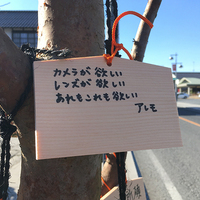 カメラが欲しい
レンズが欲しい
あれもこれも欲しい
アレモ